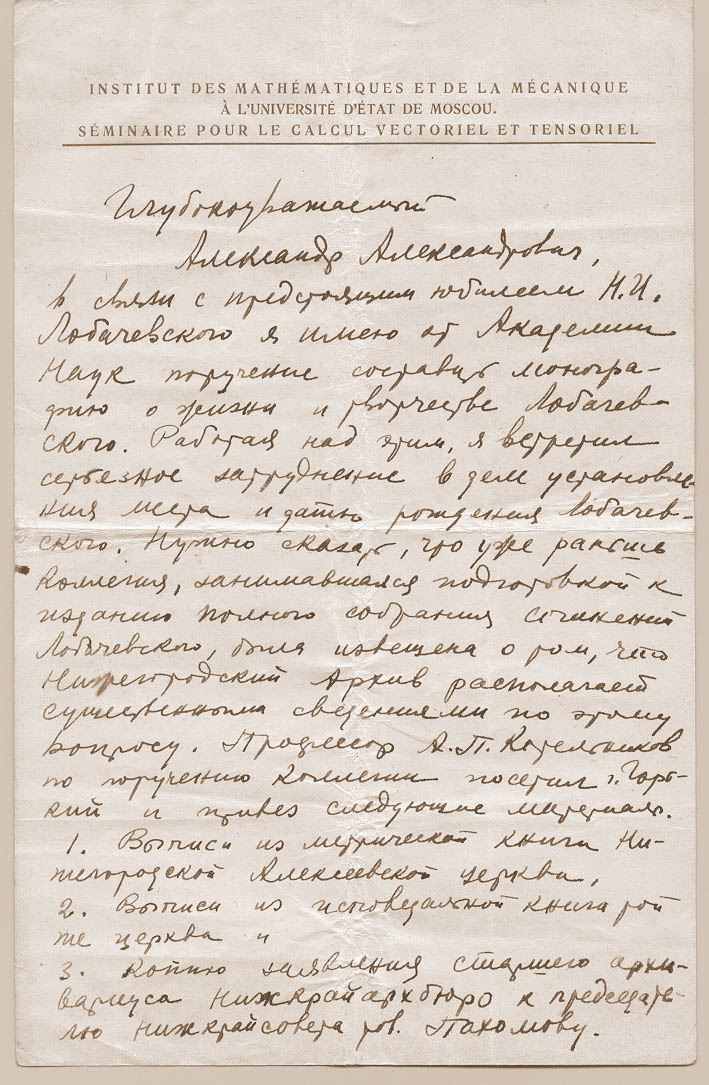 INSTITUT DES MATHÉMATIQUES ET DE LA MÉCANIQUE
À L'UNIVERSITÉ D'ÉTAT DE MOSCOU.
SÉMINAIRE POUR LE CALCUL VECTORIEL ET TENSORIEL
Глубокоуважаемый
Александр Александрович,
в связи с предстоящим юбилеем Н.И.
Лобачевского я имею от Академии
Наук поручение составить моногра-
фию о жизни и творчестве Лобачев-
ского. Работая над этим, я встретил
серьезное затруднение в деле установле-
ния места и даты рождения Лобачев-
ского. Нужно сказать, что уже раньше
коллегия, занимавшаяся подготовкой к
изданию полного собрания сочинений
Лобачевского, была извещена о том, что
Нижегородский Архив располагает
существенными сведениями по этому
вопросу. Профессор А.П. Котельников
по поручению коллегии посетил г. Горь-
кий и привез следующие материалы.
1. Выписи из метрической книги Ни-
жегородской Алексеевской церкви,
2. Выписи из исповедальной книги той
же церкви и
3. Копию заявления старшего архи-
вариуса Нижкрайархбюро к председате-
лю Нижкрайсовета тов. Пахомову.